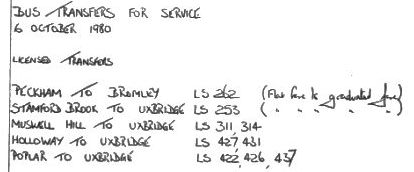 BUS TRANSFERS FOR SERVICE
6 OCTOBER 1980
LICENSED TRANSFERS
PECKHAM TO BROMLEY LS 262 (Flat fare to graduated fare)
STAMFORD BROOK TO UXBRIDGE LS 253 ( " " " " )
MUSWELL HILL TO UXBRIDGE LS 311, 314
HOLLOWAY TO UXBRIDGE LS 427, 431
POPLAR TO UXBRIDGE LS 422, 426, 437